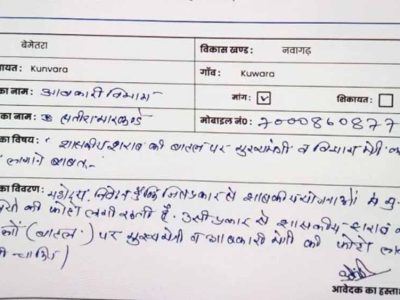 बेमेतरा विकास खण्ड: नवागढ़
ायत: Kunvara गाँव: Kuwara
का नाम: आबकारी विभाग मांग: ☑ शिकायत: ☐
का नाम: मोबाईल नं०: 7000860877
का विषय: शासकीय शराब की बाटल पर मुख्यमंत्री व विभाग मंत्री का
लगाने बाबत
का विवरण: महोदय, निवेदन है कि जिस प्रकार से शासकीय योजनाओं में मु
की फोटो लगी रहती है। उसी प्रकार से शासकीय शराब क
(बाटल) पर मुख्यमंत्री व आबकारी मंत्री की फोटो ला
चाहिए
आवेदक का हस्ता